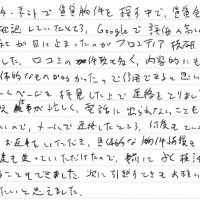 ターネットで賃貸物件を探す中で、賃貸会
確認していたところ、Googleで評価の高い
社が目に止まったのがフロンティア技研
した。口コミの件数も多く、内容的にも
体的なものが多かったので信用できると思い
ームページを拝見した上で連絡をとりまし
事が忙しく、電話に出られないことも
いので、メールで連絡したところ、何度も
お返事をいただき、具体的な物件情報も
度も送っていただけたので、検討
ることができました。次に引越すときもお願い
たいと思えました。